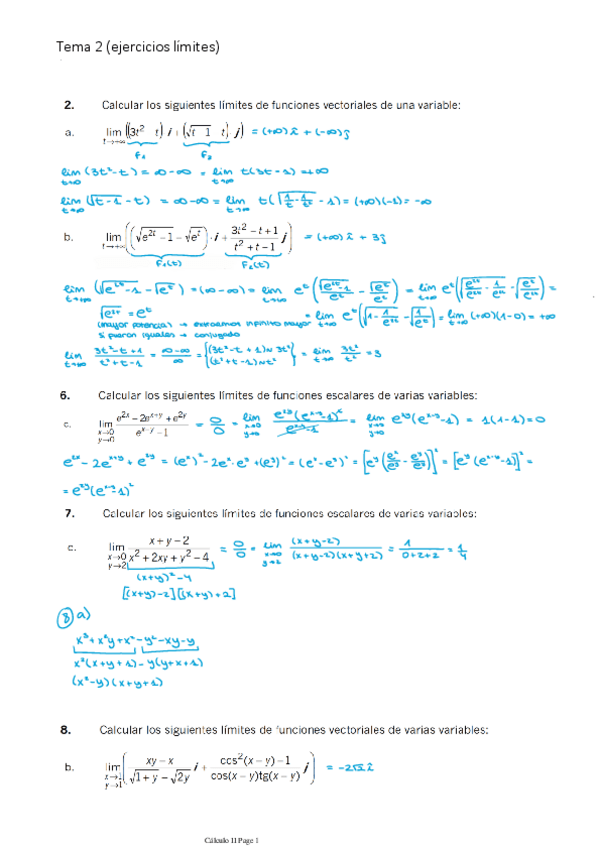 Tema 2 (ejercicios límites)
2. Calcular los siguientes límites de funciones vectoriales de una variable:
a. lim t→+∞ ((3t² t) i + (√t 1 t) j) = (+∞)î + (-∞)ĵ
F₁ F₂
lim t→∞ (3t²-t) = ∞-∞ = lim t→∞ t(3t-1) = +∞
lim t→∞ (√t-1 - t) = ∞-∞ = lim t→∞ t(√(1/t - 1/t²) - 1) = (+∞)(-1) = -∞
b. lim t→+∞ ((√(e²ᵗ-1) - √eᵗ)·i + (3t²-t+1)/(t²+t-1) j) = (+∞)î + 3ĵ
F₁(t) F₂(t)
lim t→+∞ (√(e²ᵗ-1) - √eᵗ) = (∞-∞) = lim t→∞ eᵗ(√(e²ᵗ-1)/eᵗ - √eᵗ/eᵗ) = lim t→∞ eᵗ(√(e²ᵗ/e²ᵗ - 1/e²ᵗ) - √(eᵗ/e²ᵗ)) =
√e²ᵗ = eᵗ
= lim t→∞ eᵗ(√(1 - 1/e²ᵗ) - √(1/eᵗ)) = lim t→∞ (+∞)(1-0) = +∞
(mayor potencia) → infinito mayor
Si fueran iguales → conjugado
lim t→∞ (3t²-t+1)/(t²+t-1) = (∞-∞)/∞ = {(3t²-t+1)~3t² (t²+t-1)~t²} = lim t→∞ 3t²/t² = 3
6. Calcular los siguientes límites de funciones escalares de varias variables:
c. lim x→0 y→0 (e²ˣ-2eˣ⁺ʸ+e²ʸ)/(eˣ⁻ʸ-1) = 0/0 = lim x→0 y→0 e²ʸ(eˣ⁻ʸ-1)²/(eˣ⁻ʸ-1) = lim x→0 y→0 e²ʸ(eˣ⁻ʸ-1) = 1(1-1)=0
e²ˣ - 2eˣ⁺ʸ + e²ʸ = (eˣ)² - 2eˣ·eʸ + (eʸ)² = (eˣ-eʸ)² = [eʸ(eˣ/eʸ - eʸ/eʸ)]² = [eʸ(eˣ⁻ʸ-1)]² =
= e²ʸ(eˣ⁻ʸ-1)²
7. Calcular los siguientes límites de funciones escalares de varias variables:
c. lim x→0 y→2 (x+y-2)/(x²+2xy+y²-4) = 0/0 = lim x→0 y→2 (x+y-2)/((x+y-2)(x+y+2)) = 1/(0+2+2) = 1/4
(x+y)²-4
[(x+y)-2][(x+y)+2]
8 a)
x³+x²y+x²-y²-xy-y
x²(x+y+1)-y(y+x+1)
(x²-y)(x+y+1)
8. Calcular los siguientes límites de funciones vectoriales de varias variables:
b. lim x→1 y→1 ((xy-x)/(√(1+y)-√(2y)) i + (cos²(x-y)-1)/(cos(x-y)tg(x-y)) j) = -2√2 î
Cálculo II Page 1